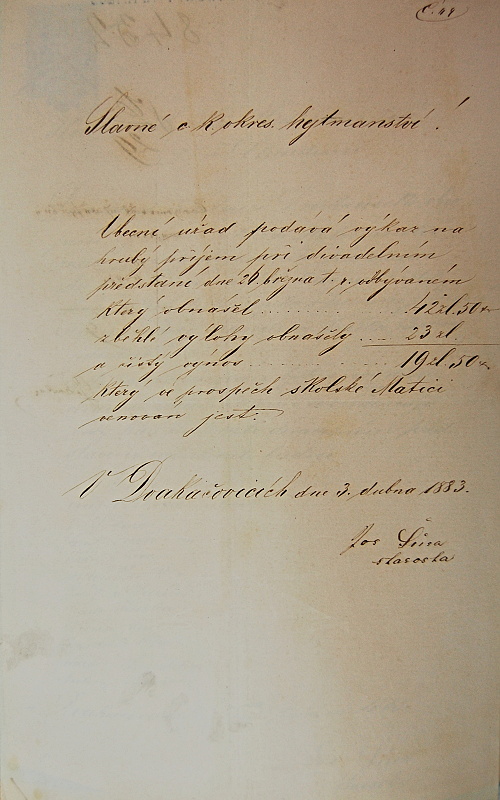 č. 44
Slavné c. k. okres. hejtmanství!
Obecní úřad podává výkaz na
hrubý příjem při divadelním
představ dne 20. března t. r. odbývaném
který obnášel .......... 42 zl. 50 kr
zběhlé výlohy obnášely .... 23 zl.
a čistý výnos .......... 19 zl. 50 kr
který ve prospěch školské Matici
věnován jest.
V dne 3. dubna 1883.
Jos
starosta